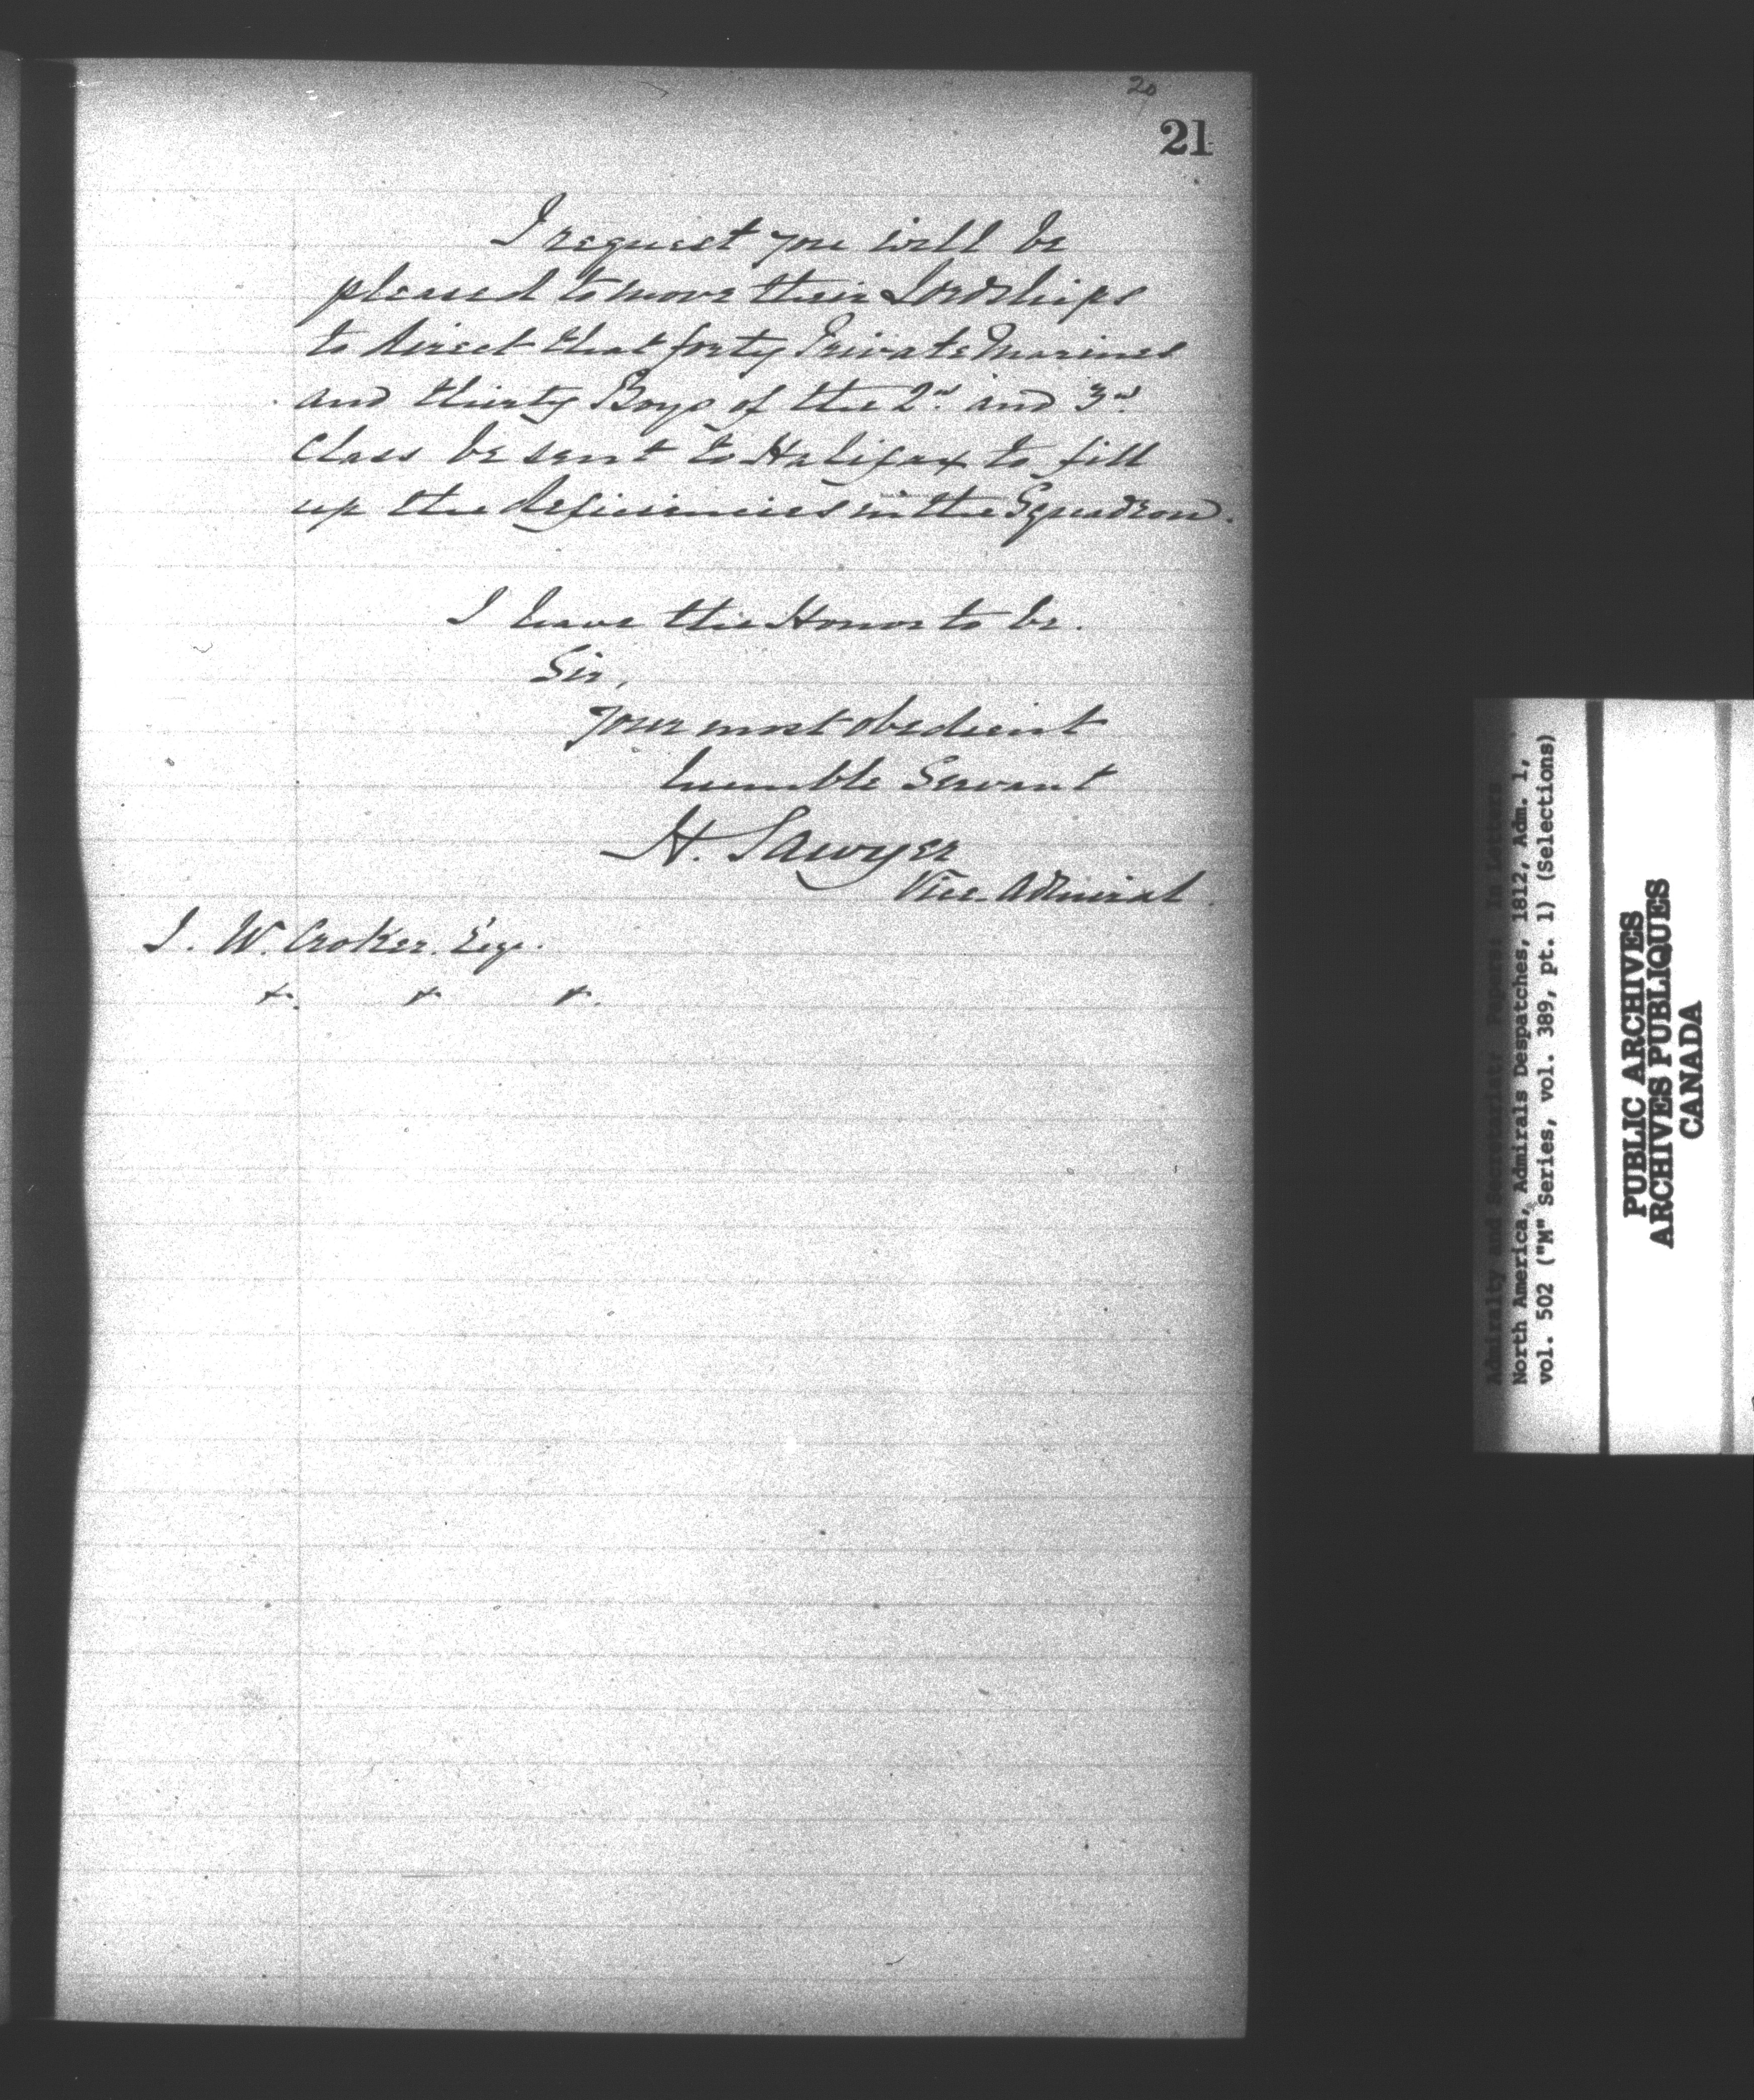 20
21
I request you will be
pleased to move their Lordships
to direct that forty Private Marines
and thirty Boys of the 2d. and 3d.
Class be sent to Halifax to fill
up the deficiencies in the Squadron.
I have the Honor to be.
Sir,
Your most obedient
humble Servant
H. Sawyer
Vice Admiral.
J. W. Croker. Esqr.
Admiralty and Secretariat: Papers: In Letters
North America, Admirals Despatches, 1812, Adm. 1,
vol. 502 ("M" Series, vol. 389, pt. 1) (Selections)
PUBLIC ARCHIVES
ARCHIVES PUBLIQUES
CANADA